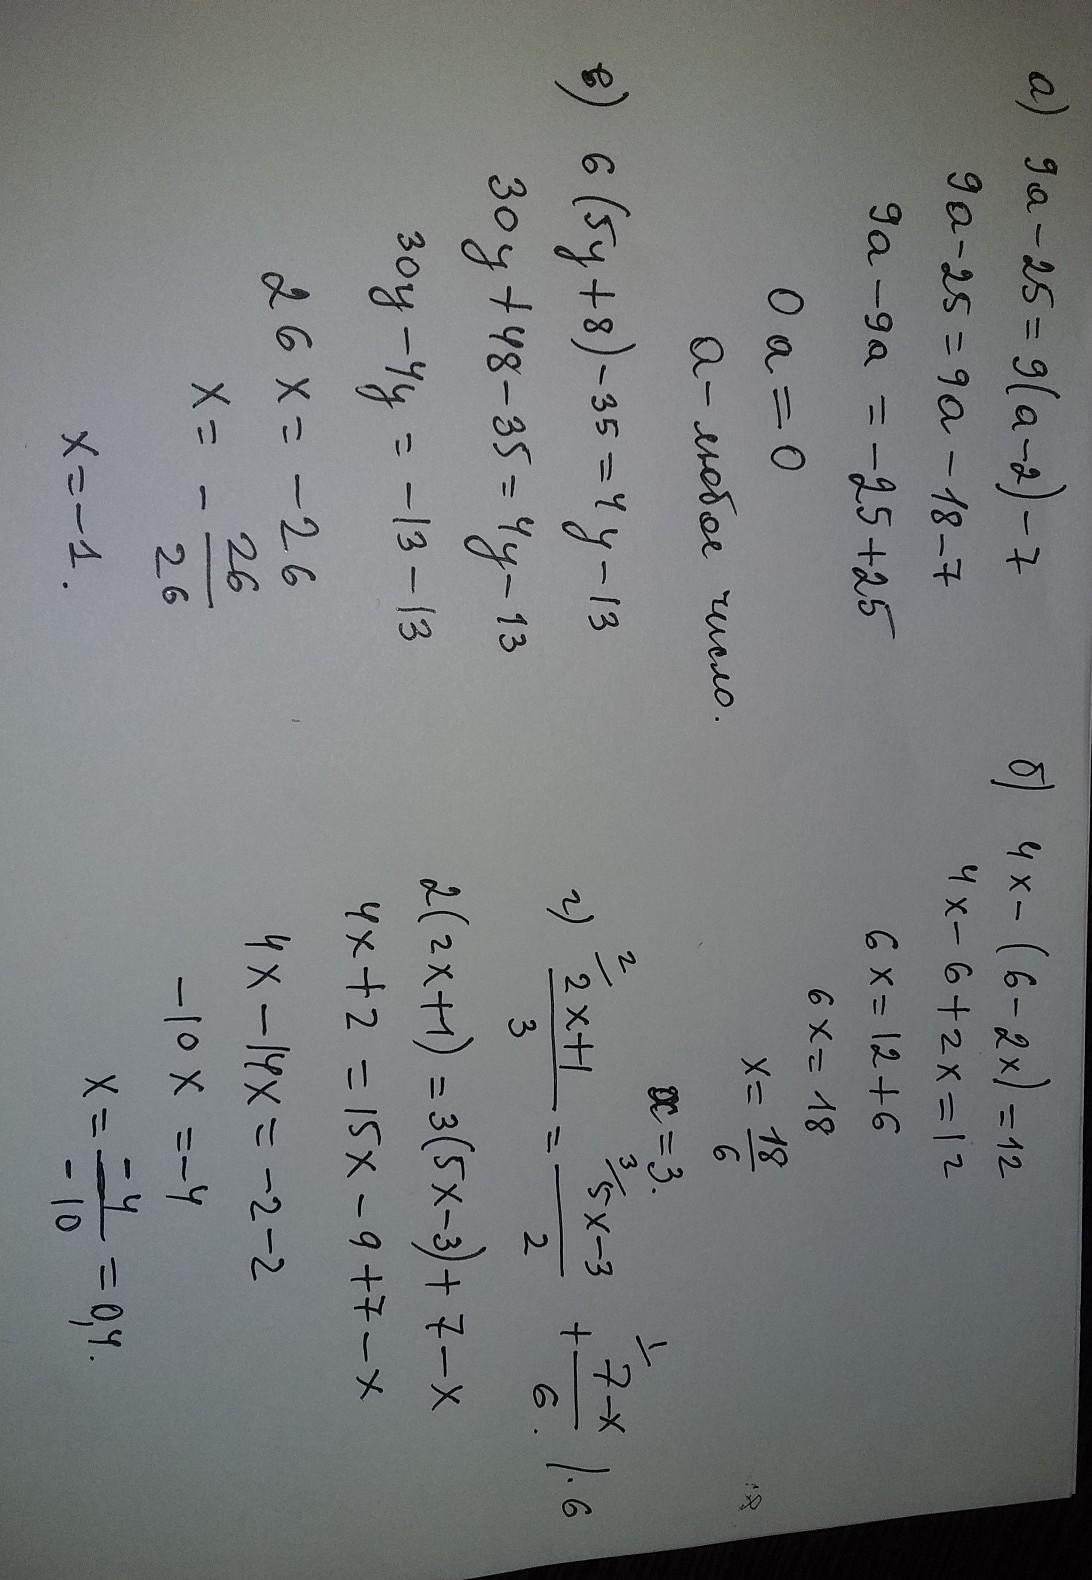 а) 9a-25=9(a-2)-7
9a-25=9a-18-7
9a-9a=-25+25
0a=0
a-любое число.
б) 4x-(6-2x)=12
4x-6+2x=12
6x=12+6
6x=18
x=18/6
x=3.
в) 6(5y+8)-35=4y-13
30y+48-35=4y-13
30y-4y=-13-13
26x=-26
x=-26/26
x=-1.
г) 2/ 2x+1/3 = 3/ 5x-3/2 + 1/ 7-x/6. /·6
2(2x+1)=3(5x-3)+7-x
4x+2=15x-9+7-x
4x-14x=-2-2
-10x=-4
x=-4/-10=0,4.